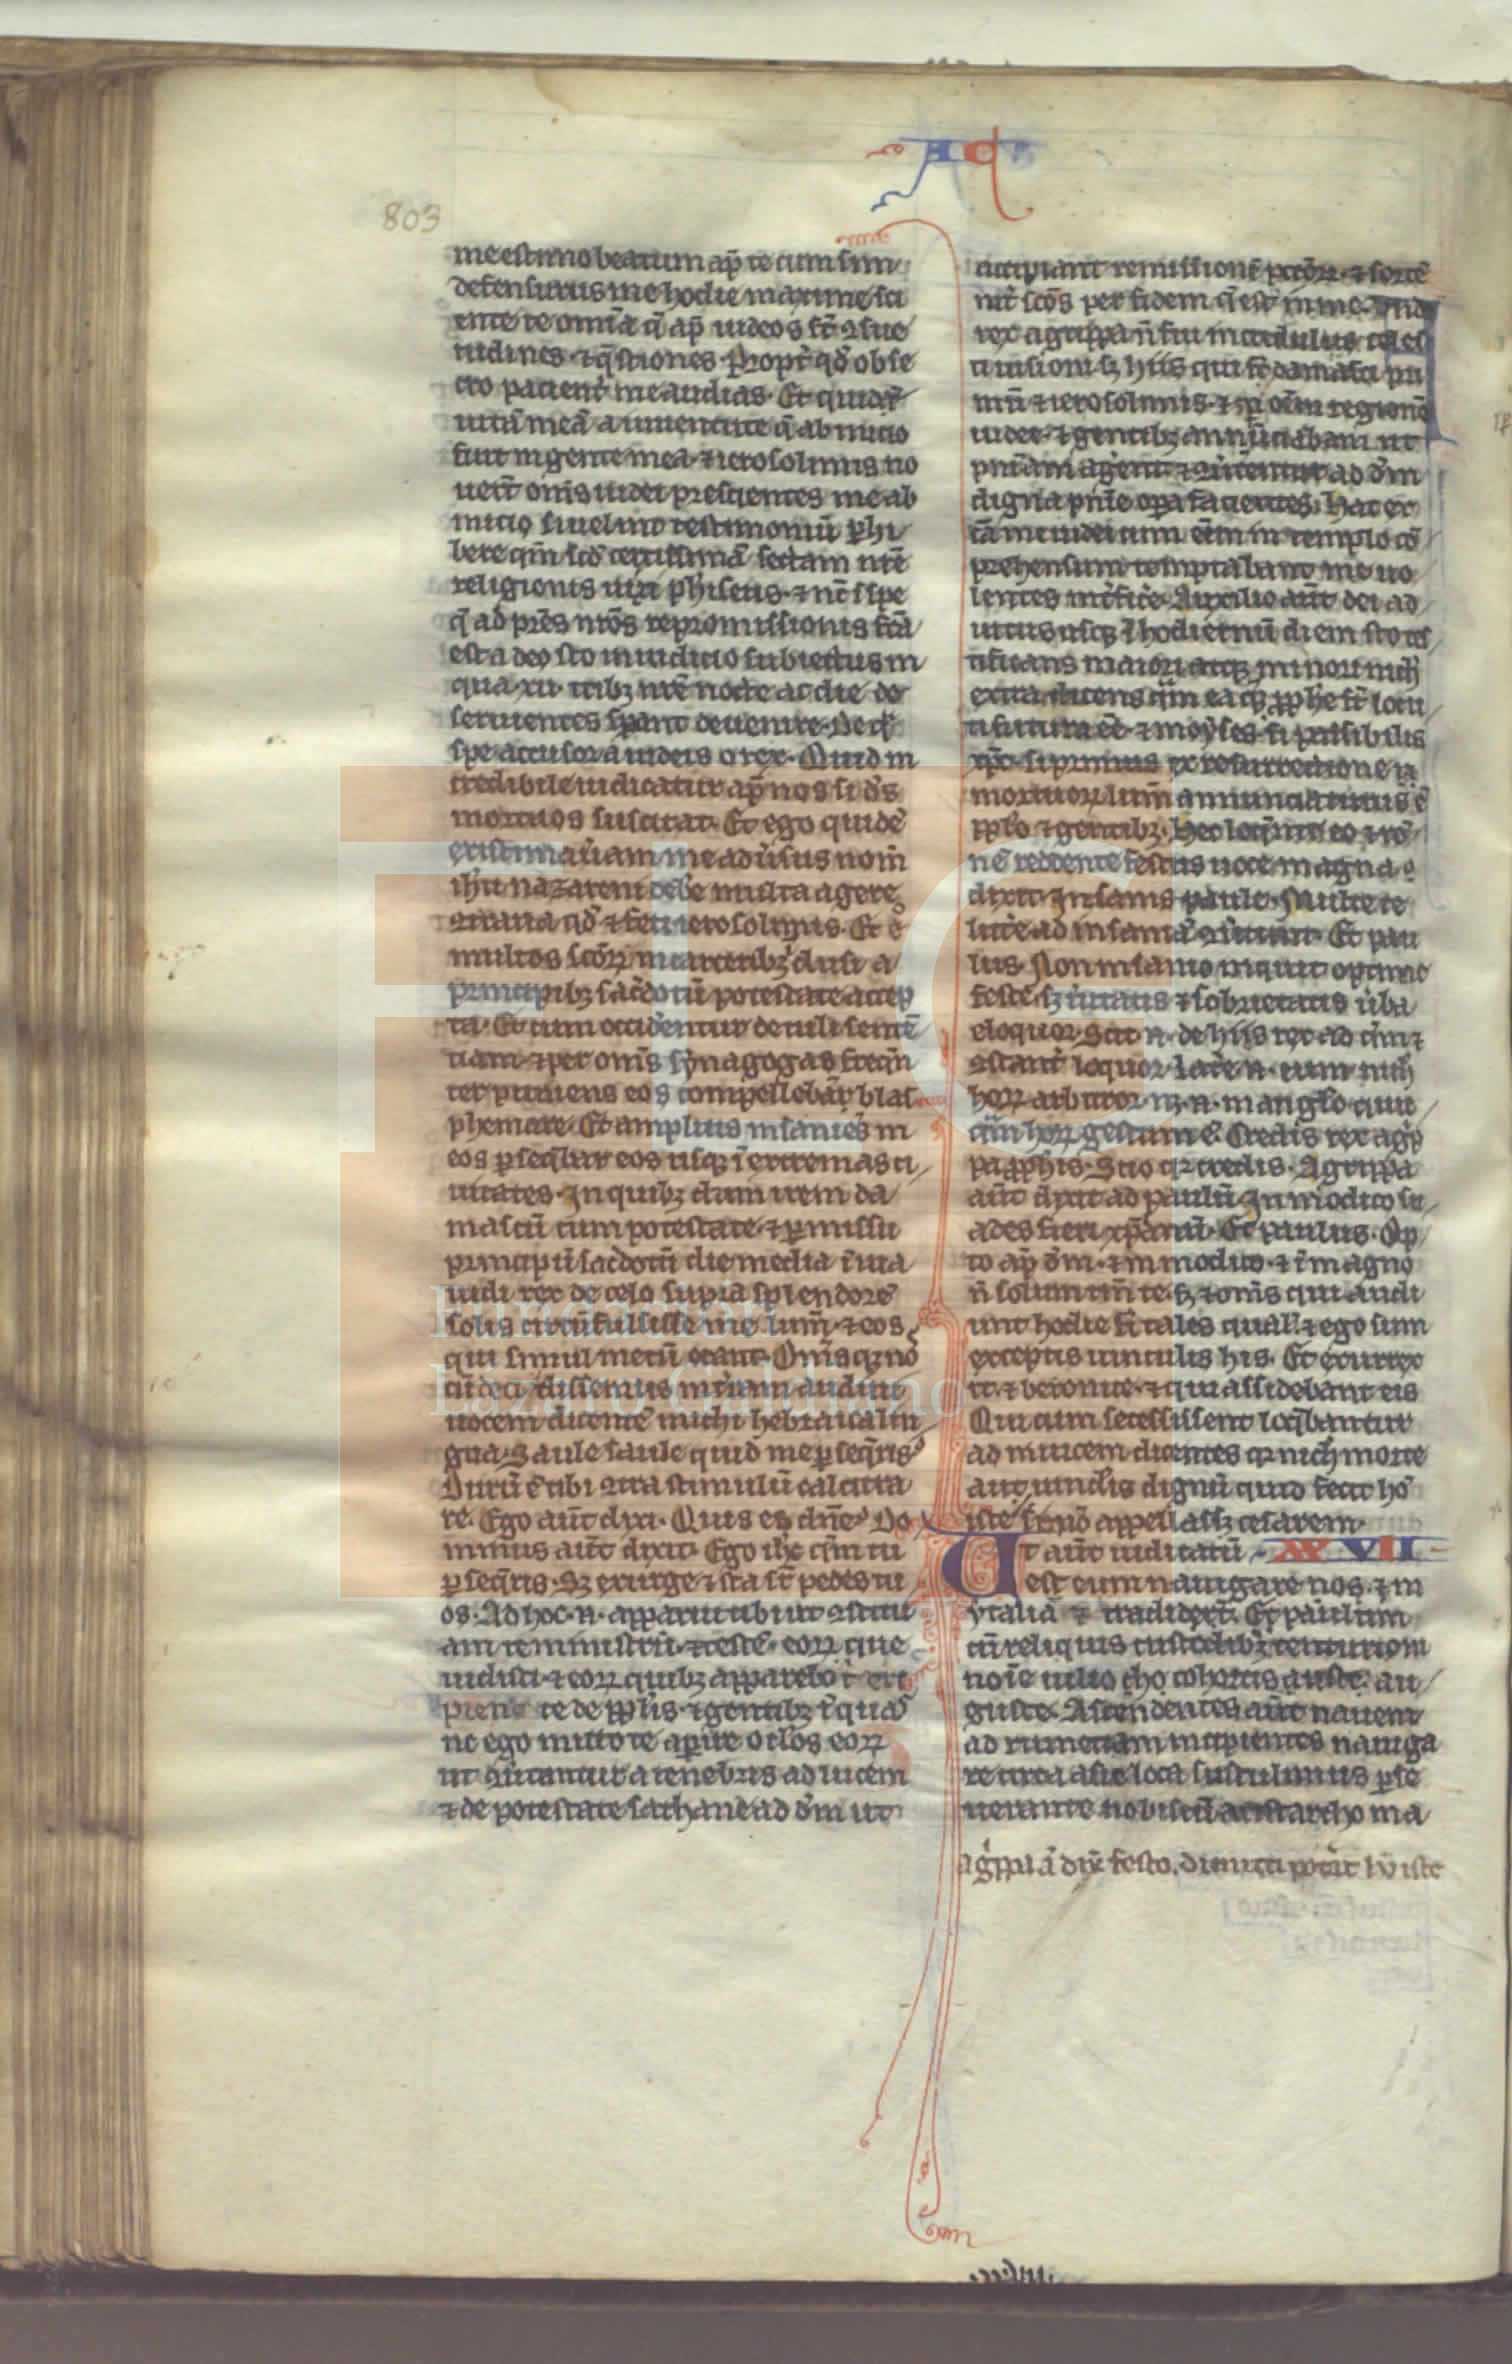 AC
803
me estimo beatum ap̄ te cum sim
defensurus me hodie maxime sci
ente te omīa q̄ ap̄ iudeos st̄ ꝯsue
tudines ⁊ q̄stiones Propt̄ qd̄ obse
cro pacient̄ me audias. Et quidē
uitā meā a iuuentute q̄ ab inicio
fuit in gente mea ⁊ ierosolimis no
uert̄ om̄s iudei prescientes me ab
inicio si uelint testimoniū phi
bere qm̄ scd̄ certissimā sectam nr̄e
religionis uixi phiseus. ⁊ nc̄ ī spe
q̄ ad pr̄es nr̄os repromissionis fc̄a
est a deo sto iuditio subiectus in
qua xii tribꝫ nr̄e nocte ac die de
seruientes sp̄ant deuenire. De q̄
spe accusor a iudeis o rex. Quid in
credibile iudicatur ap̄ nos si ds̄
mortuos suscitat. Et ego quidē
existimaūam me adūsus nom̄
ih̄u nazareni debē multa agere
ꝯtraria qd̄ ⁊ feci ierosolimis. Et ē
multos scōꝝ in carceribꝫ clusi a
principibꝫ sac̄dotū potestate accep
ta. Et cum occiderentur detuli sentē
tiam ⁊ per om̄s synagogas freq̄n
ter puniens eos compellebā blas
phemare. Et amplius insaniēs in
eos ꝑseq̄bar eos usqꝫ ī exteras ci
uitates. In quibꝫ dum irem da
mascū cum potestate ⁊ ꝑmissu
principū sac̄dotū die media ī uia
uidi rex de celo supra splendorē
solis circūfulsisse me lum̄ ⁊ eos
qui simul mecū erant. Om̄s qꝫ nos
cū decidissemus in t̄ram audiui
uocem dicentē michi hebraica lin
gua. Saule saule quid me ꝑseq̄ris
Durū ē tibi ꝯtra stimulū calcitra
re. Ego aūt dixi. Quis es dn̄e. Do
minus aūt dixit. Ego ih̄c q̄m tu
ꝑseq̄ris. Sꝫ exurge ⁊ sta sr̄ pedes tu
os. Ad hoc .n. apparui tibi ut ꝯstitu
am te ministrū ⁊ testē eoꝝ que
uidisti ⁊ eoꝝ quibꝫ apparebo t̄ eri
piens te de pp̄lis ⁊ gentibꝫ ī quas
nc̄ ego mitto te aperire oc̄los eoꝝ
ut ꝯūtantur a tenebris ad lucem
⁊ de potestate sathane ad dm̄ ut
accipiant remissionē pctōꝝ ⁊ sortē
int̄ scōs per fidem q̄ est in me. Vnde
rex agrippa n̄ fui incredulus celes
ti uisioni sꝫ hiis qui st̄ damasci pri
mū ⁊ ierosolimis ⁊ ī om̄em regionē
iudee ⁊ gentibꝫ annūciabam ut
pn̄iam agerent ⁊ ꝯūterentur ad dm̄
digna pn̄ie opa facientes. Hac ex
cā me iudei cum eēm in templo cō
prehensum temptabant me uo
lentes int̄fic̄e. Auxilio aūt dei ad
iutus usqꝫ ī hodiernū diem sto tes
tificans maiori atqꝫ minori nich̄
extra dicens q̄m ea q̄ pp̄he st̄ locu
ti futura eē ⁊ moyses. si passibilis
xp̄c. si primus ex resurrectione
mortuoꝝ lum̄ annunciaturus ē
pp̄lo ⁊ gentibꝫ. Hec loq̄nte eo ⁊ rō
nē reddente festus uoce magna
dixit. Insanis paule. Multe te
litt̄e ad insaniā ꝯūtunt. Et pau
lus. Non insanio inquit optime
feste. sꝫ ūitatis ⁊ sobrietatis ūba
eloquor. Scit .n. de hiis rex ad q̄m ⁊
ꝯstant̄ loquor. Latē .n. eum nich̄
hoꝝ arbitror. nꝫ .n. in angl̄o quic
q̄m hoꝝ gestum ē. Credis rex agrip
pa pphis. Scio qꝛ credis. Agrippa
aūt dixit ad paulū. In modico su
ades fieri xp̄ianū. Et paulus. Op
to ap̄ dm̄ ⁊ in modico ⁊ ī magno
n̄ solum tm̄ te. sꝫ ⁊ om̄s qui audi
unt hodie fi tales qual' ⁊ ego sum
exceptis uinculis his. Et exurrex
it ⁊ beronice ⁊ qui assidebant eis
Qui cum secessissent loq̄bantur
ad inuicem dicentes qꝛ nich̄ morte
aut uinclis dignū quid fecit ho
iste si nō appellasꝫ cesarem.
Ut aūt iudicatū XXVII
est eum nauigare nos ⁊ in
ytaliā ⁊ tradidert̄. Et paulum
cū reliquis custodibꝫ centurioni
noīe iulio cho cohortis auste. au
guste. Ascendentes aūt nauem
ad rumetiam incipientes nauiga
re circa asie loca sustulimus ꝑse
uerante nobiscū aristarcho ma
agrippa ā dix̄ festo. dimitti pot̄at hō iste